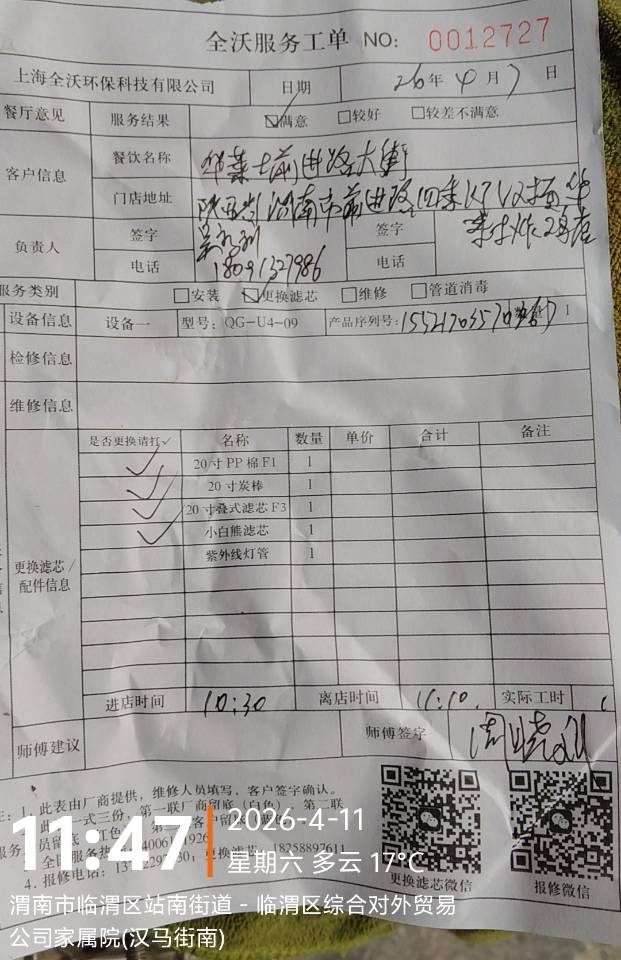 全沃服务工单 NO: 0012727
上海全沃环保科技有限公司 日期 26年4月7日
餐厅意见 服务结果 ☑满意 □较好 □较差不满意
客户信息 餐饮名称 华莱士前进路大街
门店地址 陕西省渭南市前进路四季KTV对面华
莱士炸鸡店
负责人 签字 签字
电话 18091327986 电话
服务类别 □安装 ☑更换滤芯 □维修 □管道消毒
设备信息 设备一 型号: QG-U4-09 产品序列号: 1
检修信息
维修信息
更换滤芯/配件信息
是否更换请打✓ 名称 数量 单价 合计 备注
✓ 20寸PP棉F1 1
✓ 20寸炭棒 1
✓ 20寸叠式滤芯F3 1
✓ 小白熊滤芯 1
紫外线灯管 1
进店时间 10:30 离店时间 11:10. 实际工时
师傅建议 师傅签字
注: 1. 此表由厂商提供, 维修人员填写, 客户签字确认。
一式三份, 第一联厂商留底(白色) 第二联
更换滤芯: 18258897611
4. 报修电话:
更换滤芯微信 报修微信
11:47
2026-4-11
星期六 多云 17°C
渭南市临渭区站南街道 - 临渭区综合对外贸易
公司家属院(汉马街南)